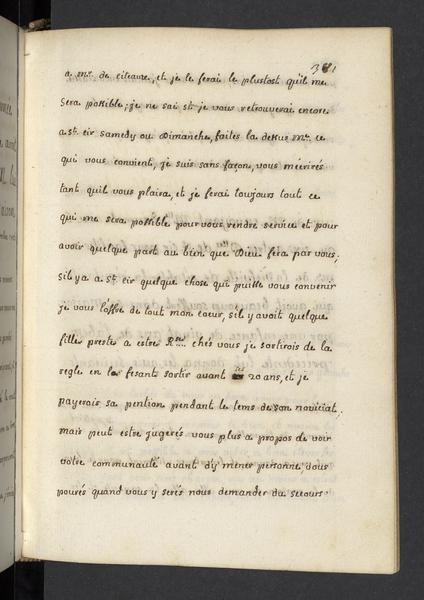 381
a mr. de citeaux, et je le ferai le plustost qu'il me
sera possible; je ne sai si je vous retrouverai encore
a st. cir samedy ou Dimanche, faites la dessus me. ce
qui vous convient, je suis sans façon, vous m'ecrirés
tant quil vous plaira, et je ferai toujours tout ce
qui me sera possible pour vous rendre service et pour
avoir quelque part au bien que Dieu fera par vous;
sil y a a St. cir quelque chose qui puisse vous convenir
je vous l'offre de tout mon coeur, s'il y avoit quelque
fille preste a estre Rse. ches vous je sortirois de la
regle en la fesant sortir avant les 20 ans, et je
payerois sa pention pendant le tems de son noviciat;
mais peut estre jugerés vous plus a propos de voir
votre communauté avant d'y mener personne, vous
pourés quand vous y serés nous demander du secours.